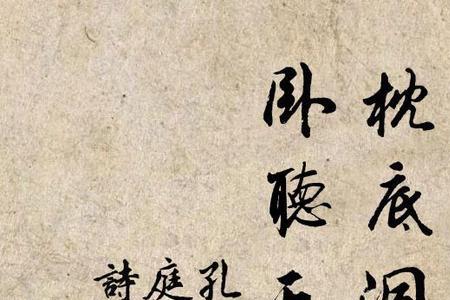 枕底
卧聽
孔
庭
詩